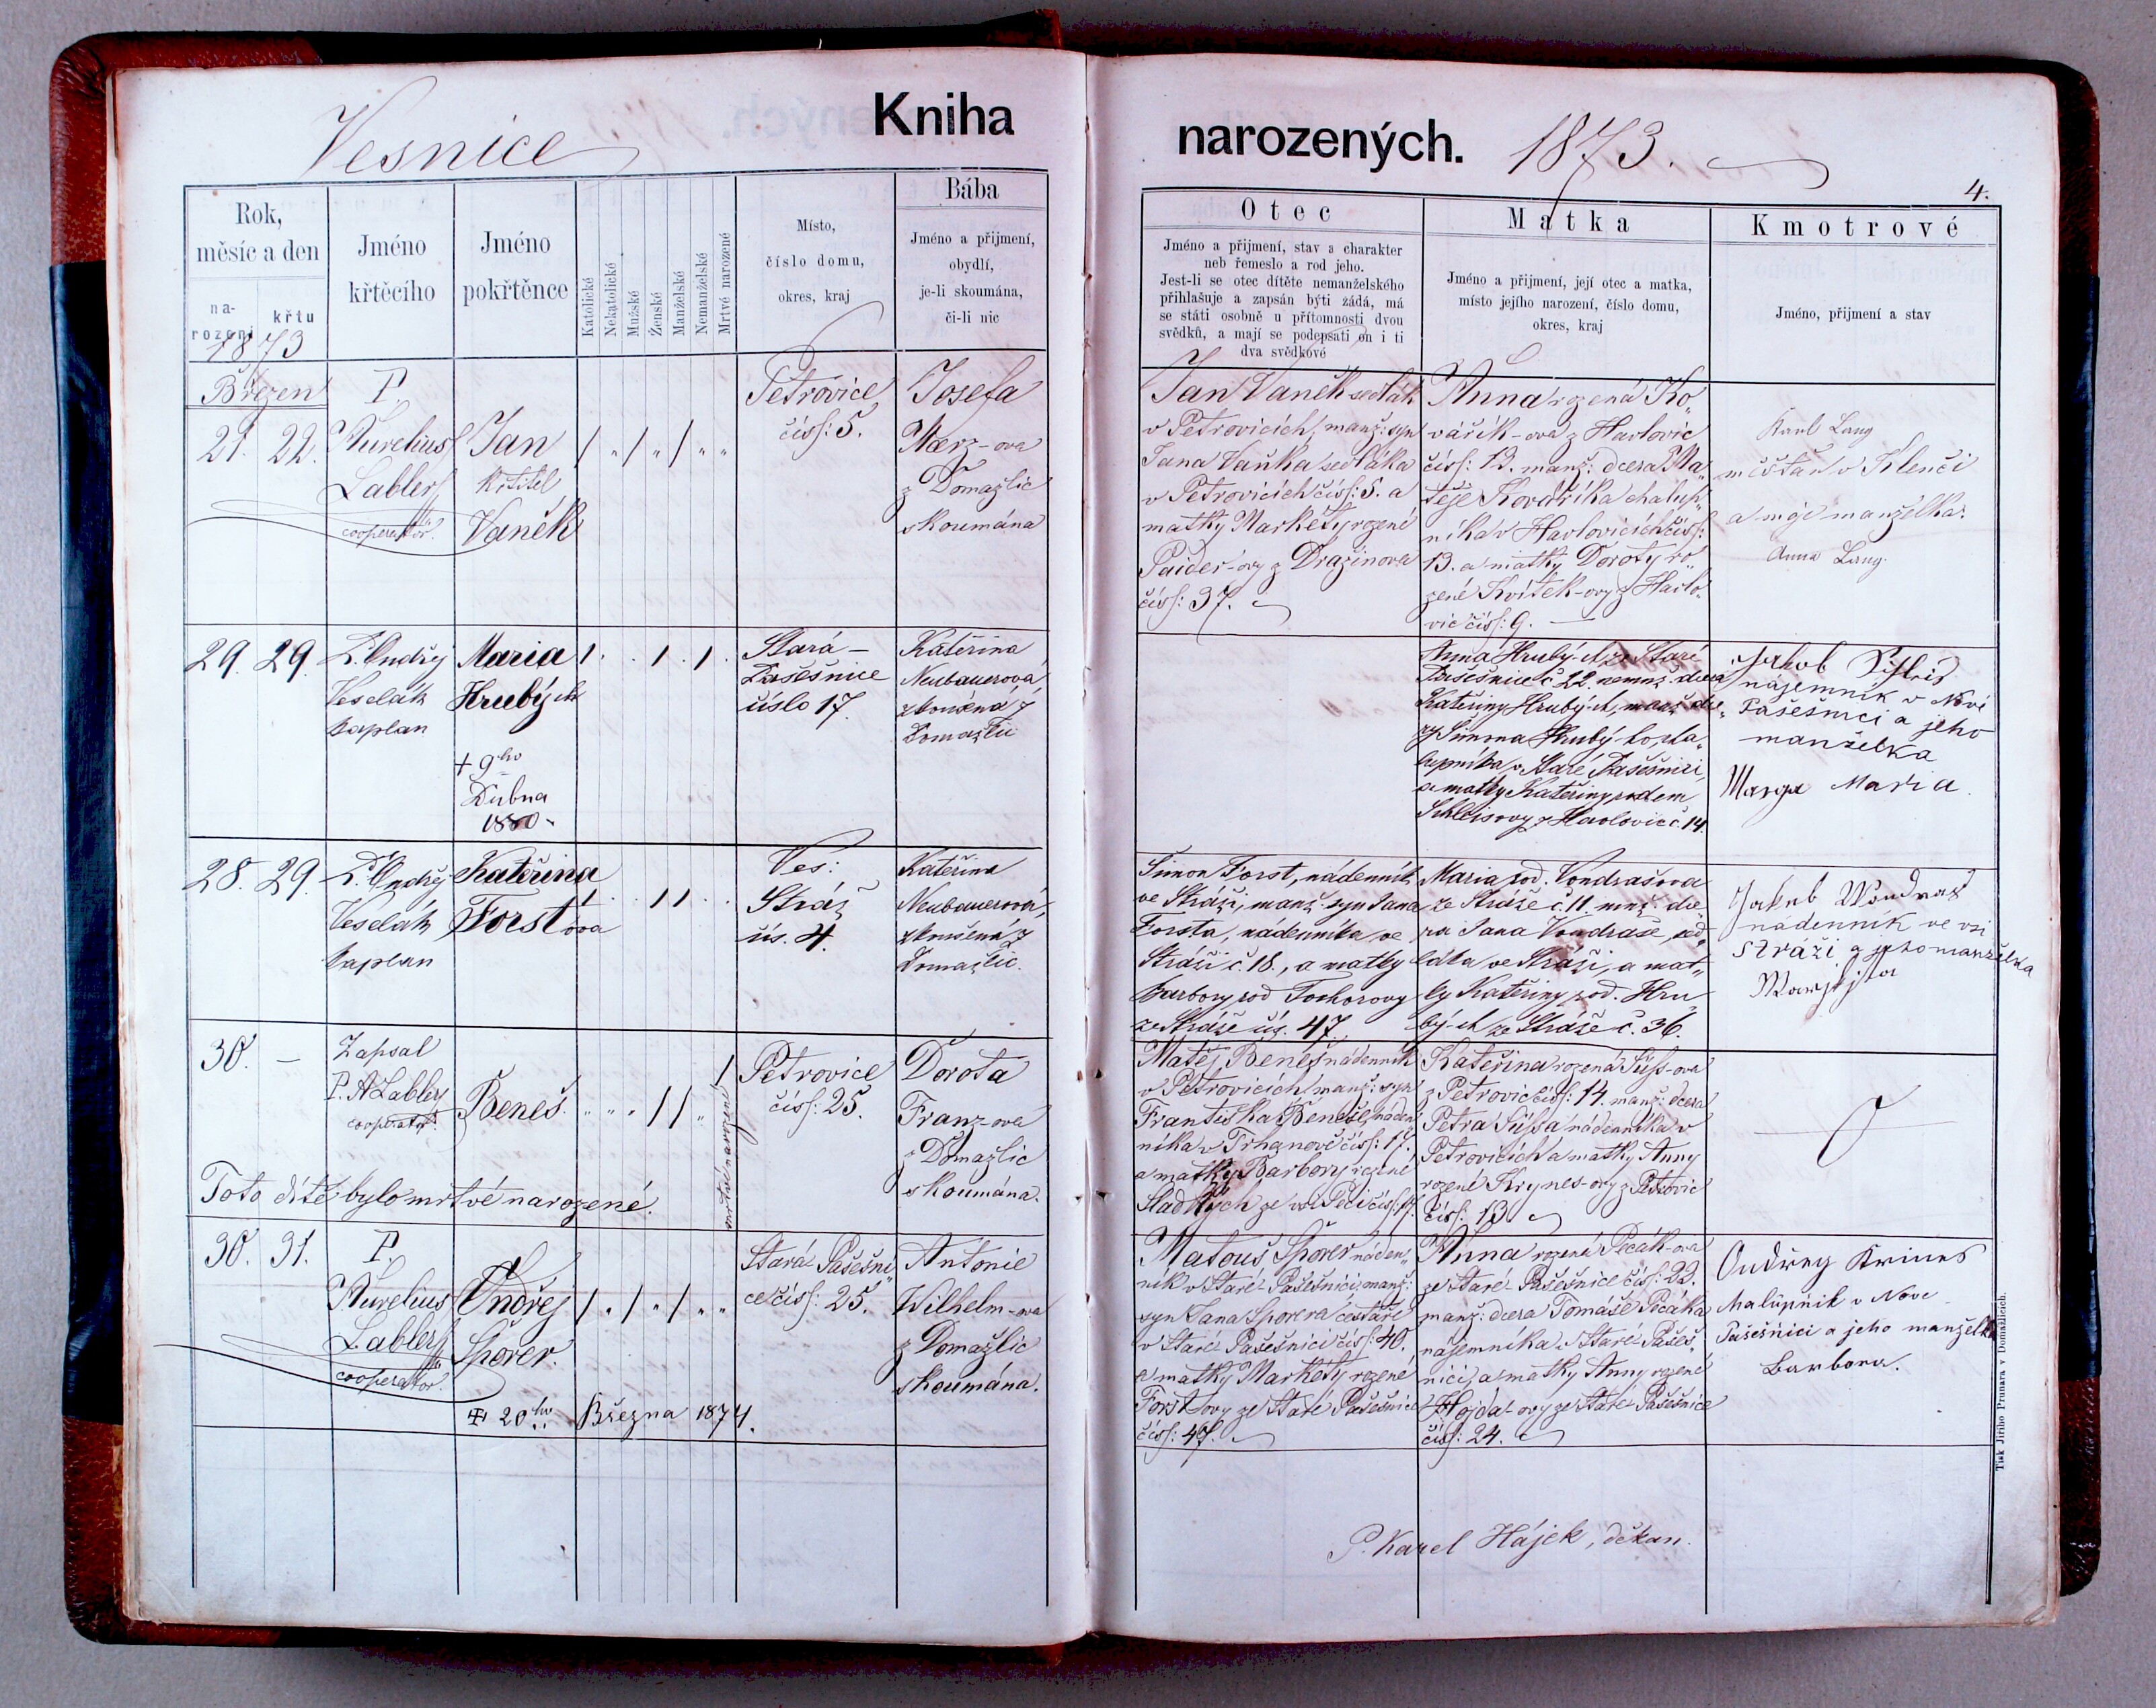 Vesnice
Kniha
narozených. 1873.
4.
Rok,
měsíc a den
na-
rození
křtu
1873
Jméno
křtěcího
Jméno
pokřtěnce
Katolické
Nekatolické
Mužské
Ženské
Manželské
Nemanželské
Mrtvé narozené
Místo,
číslo domu,
okres, kraj
Bába
Jméno a přijmení,
obydlí,
je-li skoumána,
či-li nic
Otec
Jméno a přijmení, stav a charakter
neb řemeslo a rod jeho.
Jest-li se otec dítěte nemanželského
přihlašuje a zapsán býti žádá, má
se státi osobně u přítomnosti dvou
svědků, a mají se podepsati on i ti
dva svědkové
Matka
Jméno a přijmení, její otec a matka,
místo jejího narození, číslo domu,
okres, kraj
Kmotrové
Jméno, přijmení a stav
Březen
21. 22.
P.
Aurelius
Labler
cooperator.
Jan
Křtitel
Vaněk
/ „ / „ / „ „
Petrovice
čísl: 5.
Josefa
Merz-ova
z Domažlic
skoumána
Jan Vaněk sedlák
v Petrovicích, manž: syn
Jana Vaňka sedláka
v Petrovicích čísl: 5. a
matky Markéty rozené
Paider-ovy z Dražinova
čísl: 37.
Anna rozená Ko„
vářík-ova z Havlovic
čísl: 13. manž: dcera Ma„
těje Kovaříka chalup„
níka v Havlovicích čísl:
13. a matky Doroty ro„
zené Kvítek-ovy z Havlo„
vic čísl: 9.
Karl Lang
měšťan v Klenči
a můje manželka.
Anna Lang.
29. 29.
P. Ondřej
Veselák
kaplan
Maria
Hrubých
† 9ho
Dubna
1880
1 . . 1 . 1 .
Stará-
Pasešnice
číslo 17.
Kateřina
Neubauerová,
zkoušená z
Domažlic
Anna Hrubý-ch, ze Staré
Pasešnice č. 22. nemž. dcera
Kateřiny Hrubý-ch, manž. dce„
ry Šimona Hrubý-ho, cha„
lupníka v Staré Pasešnici,
a matky Kateřiny rodem
Schleisovy z Havlovic č. 14.
Jakob
nájemník v Nové
Pašešnici a jeho
manželka
Marya Maria.
28. 29.
P. Ondřej
Veselák
kaplan
Kateřina
Forstova
1 . . 1 1 . .
Ves:
Stráž
čís. 4.
Kateřina
Neubauerová,
zkoušená z
Domažlic.
Šimon Forst, nádenník
ve Stráži, manž. syn Jana
Forsta, nádenníka ve
Stráži č. 18., a matky
Barbory rod. Tochorovy
ze Stráže čís. 47.
Maria rod. Vondrašova
ze Stráže č. 11. mnž. dce„
ra Jana Vondraše, sed„
láka ve Stráži, a mat„
ky Kateřiny rod. Hru„
bý-ch ze Stráže č. 36.
Jakub Wondraš
nádenník ve vsi
Stráži a jeho manželka
30. –
Zapsal
P. A Labler
cooperator.
Beneš.
„ „ „ / / „ /
mrtvě narozené
Petrovice
čísl: 25.
Dorota
Franz-ova
z Domažlic
skoumána.
Toto dítě bylo mrtvé narozené.
Matěj Beneš nádenník
v Petrovicích, manž: syn
Františka Beneše, náden
níka v Trhanově čísl: 17.
a matky Barbory rozené
Sladkých ze vsi Peci čísl: 17.
Kateřina rozená Süss-ova
z Petrovic čísl: 14. manž: dcera
Petra Süssa nádenníka v
Petrovicích a matky Anny
rozené Krynes-ovy z Petrovic
čísl: 13.
30. 31.
P.
Aurelius
Labler
cooperator.
Ondřej
Sporer.
/ „ / „ / „ „
Stará Pašešni„
ce čísl: 25.
Antonie
Wilhelm-ova
z Domažlic
skoumána.
20ho Března 1874.
Matouš Sporer náden„
ník v Staré Pašešnici, manž:
syn Jana Sporera cestáře
v Staré Pašešnici čísl: 40.
a matky Markéty rozené
Forstovy ze Staré Pašešnice
čísl: 47.
Anna rozená Pecák-ova
ze Staré Pašešnice čísl: 22.
manž: dcera Tomáše Pecáka
nájemníka v Staré Pašeš„
nici, a matky Anny rozené
Hojda-ovy ze Staré Pašešnice
čísl: 24.
Ondřey Krines
halupník v Nove
Pašešnici a jeho manželka
Barbora.
P. Karel Hájek, děkan.
Tisk Jiřího Prunara v Domažlicích.